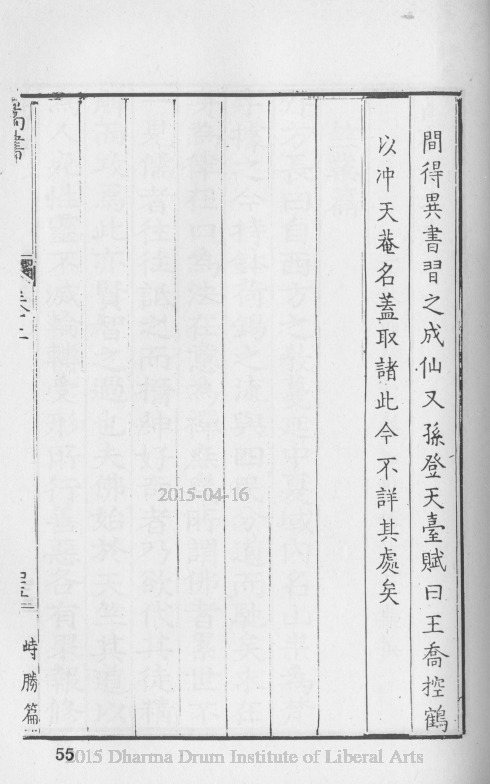 間得異書習之成仙又孫登天臺賦曰王喬控鶴
以冲天菴名蓋取諸此今不詳其處矣
峙勝篇
2015-04-16
55
2015 Dharma Drum Institute of Liberal Arts